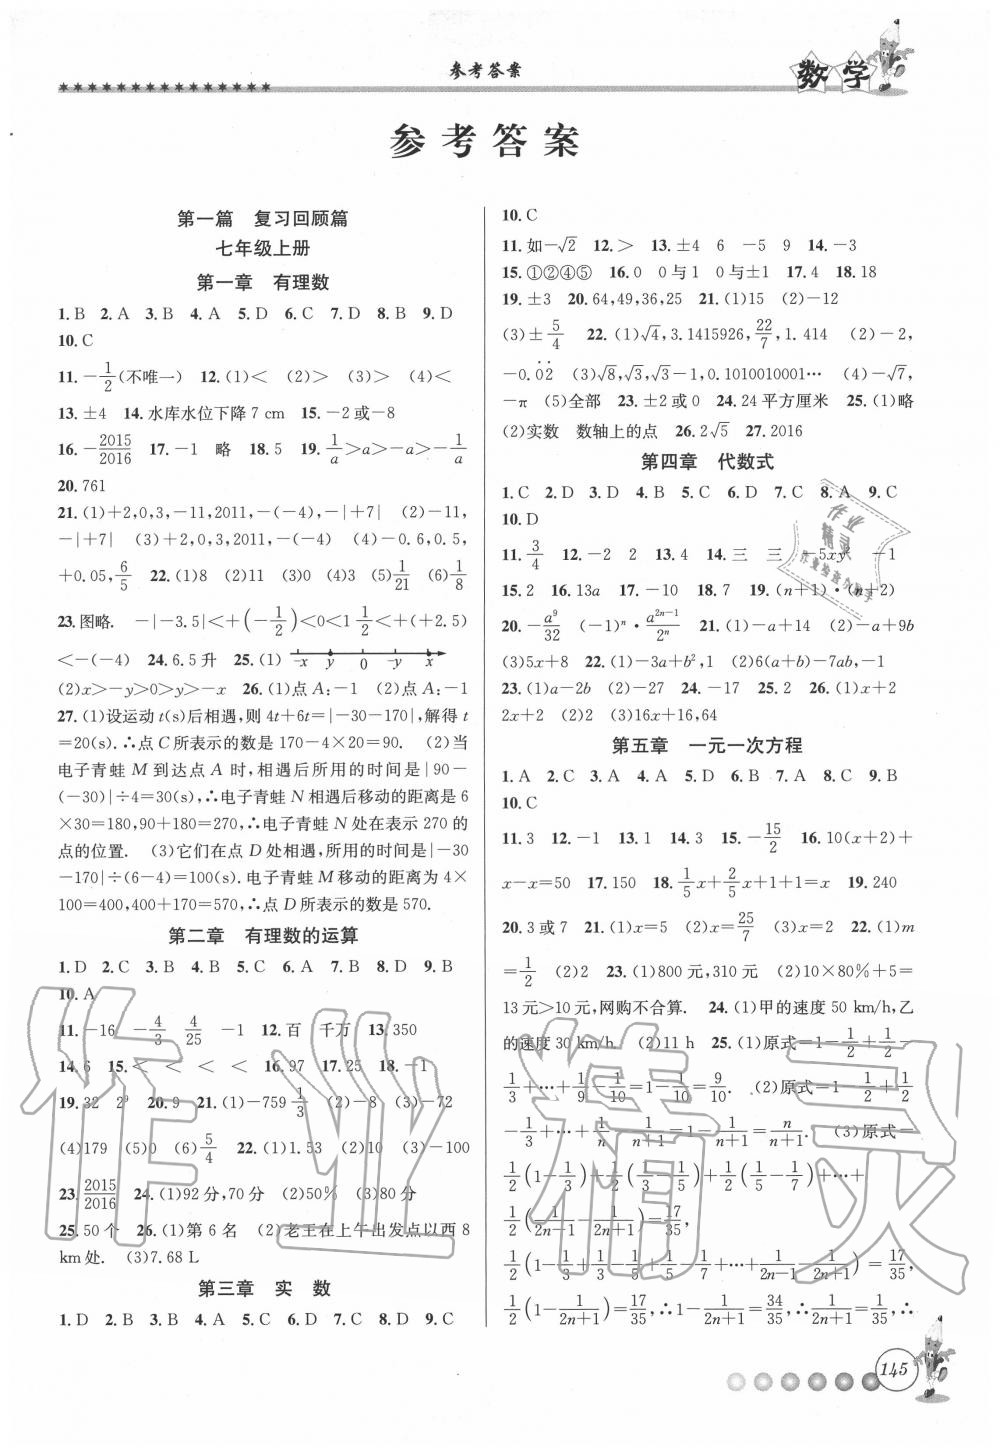 参考答案
数学
参考答案
第一篇 复习回顾篇
七年级上册
第一章 有理数
1.B 2.A 3.B 4.A 5.D 6.C 7.D 8.B 9.D
10.C
11.-1/2(不唯一) 12.(1)< (2)> (3)> (4)<
13.±4 14.水库水位下降7 cm 15.-2或-8
16.-2015/2016 17.-1 略 18.5 19.1/a>a>-a>-1/a
20.761
21.(1)+2,0,3,-11,2011,-(-4),-|+7| (2)-11,
-|+7| (3)+2,0,3,2011,-(-4) (4)-0.6,0.5,
+0.05,6/5 22.(1)8 (2)11 (3)0 (4)3 (5)1/21 (6)1/8
23.图略. -|-3.5|<+(-1/2)<0<1 1/2<+(+2.5)
<-(-4) 24.6.5升 25.(1) -x y 0 -y x
(2)x>-y>0>y>-x 26.(1)点A:-1 (2)点A:-1
27.(1)设运动t(s)后相遇,则4t+6t=|-30-170|,解得t
=20(s).∴点C所表示的数是170-4×20=90. (2)当
电子青蛙M到达点A时,相遇后所用的时间是|90-
(-30)|÷4=30(s),∴电子青蛙N相遇后移动的距离是6
×30=180,90+180=270,∴电子青蛙N处在表示270的
点的位置. (3)它们在点D处相遇,所用的时间是|-30
-170|÷(6-4)=100(s).电子青蛙M移动的距离为4×
100=400,400+170=570,∴点D所表示的数是570.
第二章 有理数的运算
1.D 2.C 3.B 4.B 5.C 6.A 7.B 8.D 9.B
10.A
11.-16 -4/3 4/25 -1 12.百 千万 13.350
14.6 15.< < < < 16.97 17.25 18.-1
19.32 2⁹ 20.9 21.(1)-759 1/3 (2)-8 (3)-72
(4)179 (5)0 (6)5/4 22.(1)1.53 (2)10 (3)-100
23.2015/2016 24.(1)92分,70分 (2)50% (3)80分
25.50个 26.(1)第6名 (2)老王在上午出发点以西8
km处. (3)7.68 L
第三章 实数
1.D 2.B 3.B 4.A 5.C 6.D 7.D 8.D 9.C
10.C
11.如-√2 12.> 13.±4 6 -5 9 14.-3
15.①②④⑤ 16.0 0与1 0与±1 17.4 18.18
19.±3 20.64,49,36,25 21.(1)15 (2)-12
(3)±5/4 22.(1)√4,3.1415926,22/7,1.414 (2)-2,
-0.0̇2̇ (3)√8,√3,√3-1,0.1010010001… (4)-√7,
-π (5)全部 23.±2或0 24.24平方厘米 25.(1)略
(2)实数 数轴上的点 26.2√5 27.2016
第四章 代数式
1.C 2.D 3.D 4.B 5.C 6.D 7.C 8.A 9.C
10.D
11.3/4 12.-2 2 13.4 14.三 三 -5xy -1
15.2 16.13a 17.-10 18.7 19.(n+1)·(n+2)
20.-a⁹/32 (-1)ⁿ·a²ⁿ⁻¹/2ⁿ 21.(1)-a+14 (2)-a+9b
(3)5x+8 22.(1)-3a+b²,1 (2)6(a+b)-7ab,-1
23.(1)a-2b (2)-27 24.-17 25.2 26.(1)x+2
2x+2 (2)2 (3)16x+16,64
第五章 一元一次方程
1.A 2.C 3.A 4.D 5.D 6.B 7.A 8.C 9.B
10.C
11.3 12.-1 13.1 14.3 15.-15/2 16.10(x+2)+
x-x=50 17.150 18.1/5x+2/5x+1+1=x 19.240
20.3或7 21.(1)x=5 (2)x=25/7 (3)x=2 22.(1)m
=1/2 (2)2 23.(1)800元,310元 (2)10×80%+5=
13元>10元,网购不合算. 24.(1)甲的速度50 km/h,乙
的速度30 km/h (2)11 h 25.(1)原式=1-1/2+1/2-
1/3+…+1/9-1/10=1-1/10=9/10. (2)原式=1-1/2+1/2
-1/3+…+1/n-1/n+1=1-1/n+1=n/n+1. (3)原式=
1/2(1-1/3)+1/2(1/3-1/5)+1/2(1/5-1/7)+…+
1/2(1/2n-1-1/2n+1)=17/35,
1/2(1-1/3+1/3-1/5+…+1/2n-1-1/2n+1)=17/35,
1/2(1-1/2n+1)=17/35,∴1-1/2n+1=34/35,1/2n+1=1/35,∴
145
作业精灵
作业精灵